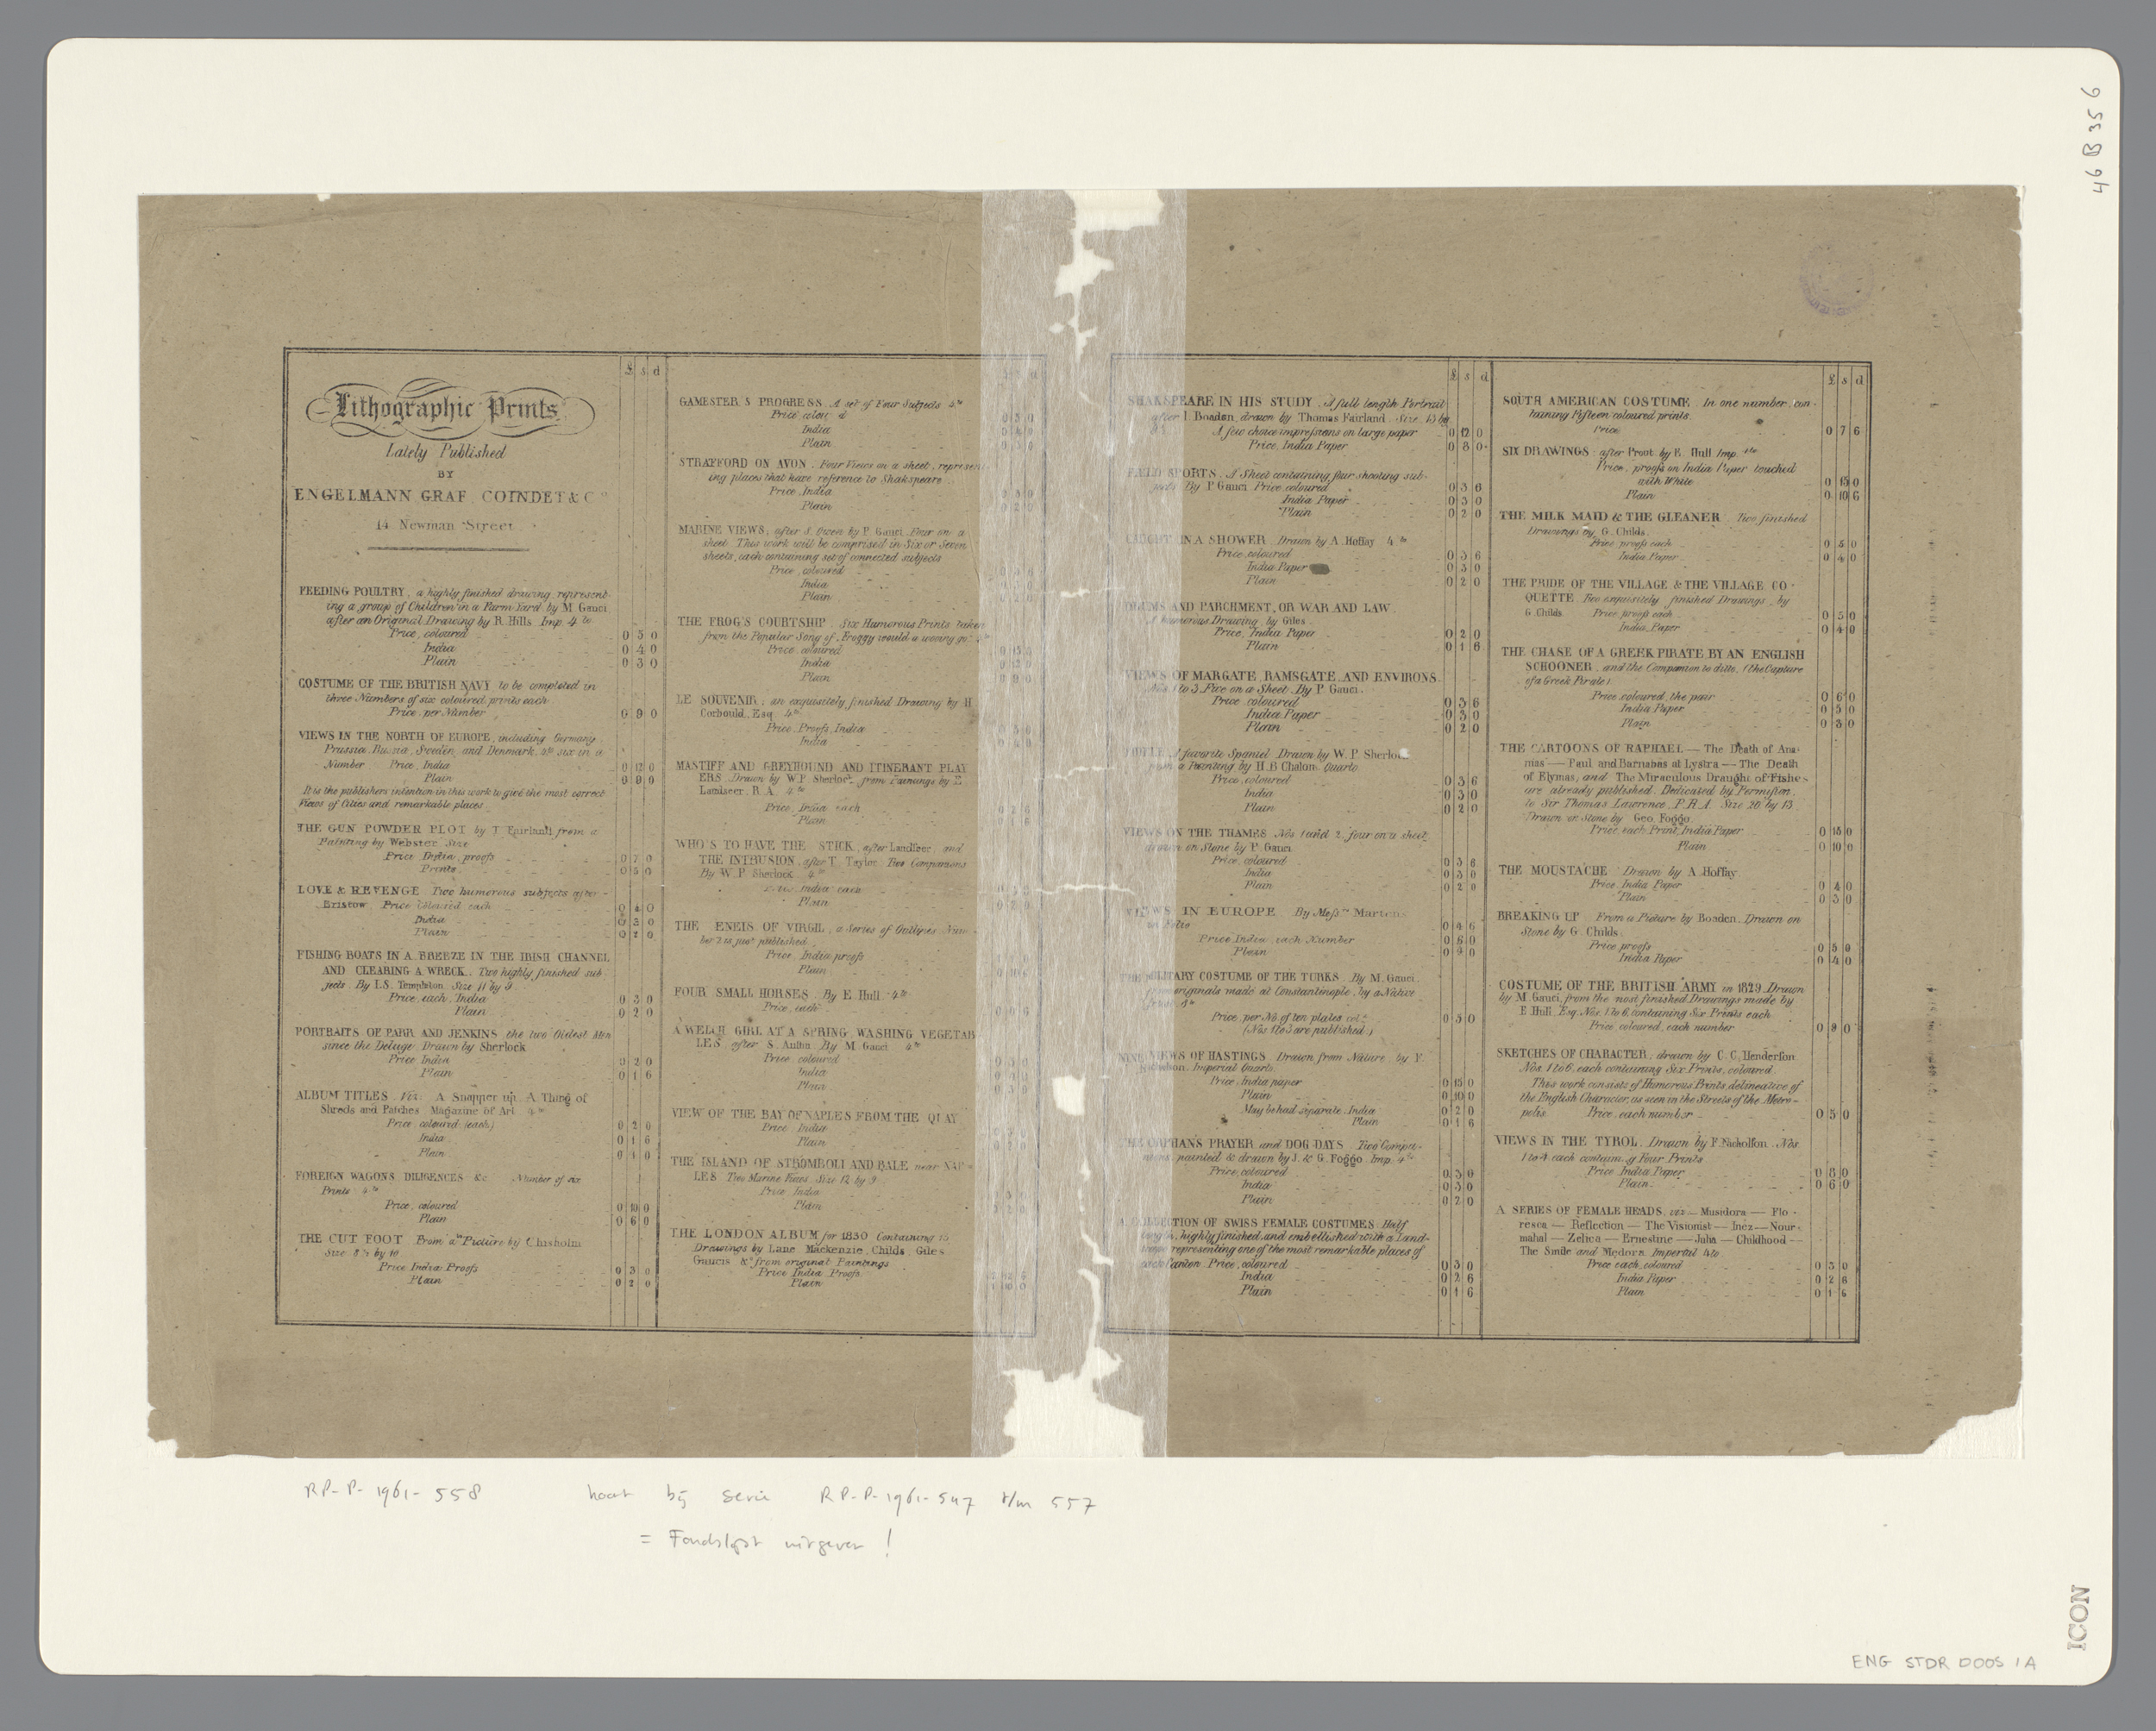 Lithographic Prints
Lately Published
BY
ENGELMANN, GRAF, COINDET & Co
14 Newman Street
£ s d
FEEDING POULTRY, a highly finished drawing, represent-
ing a group of Children in a Farm Yard by M Gauci
after an Original Drawing by R. Hills. Imp. 4to
Price, coloured 0 5 0
India 0 4 0
Plain 0 3 0
COSTUME OF THE BRITISH NAVY to be completed in
three Numbers of six coloured prints each
Price per Number 0 9 0
VIEWS IN THE NORTH OF EUROPE, including Germany,
Prussia, Russia, Sweden, and Denmark, 4to six in a
Number Price, India 0 12 0
Plain 0 9 0
It is the publishers intention in this work to give the most correct
Views of Cities and remarkable places
THE GUN POWDER PLOT by T Fairland, from a
Painting by Webster. Size
Price India proofs 0 7 0
Prints 0 5 0
LOVE & REVENGE Two humorous subjects after
Bristow Price Coloured each 0 4 0
India 0 3 0
Plain 0 2 0
FISHING BOATS IN A BREEZE IN THE IRISH CHANNEL
AND CLEARING A WRECK. Two highly finished sub-
jects. By I.S. Templeton. Size 11 by 9
Price each, India 0 3 0
Plain 0 2 0
PORTRAITS OF PARR AND JENKINS the two Oldest Men
since the Deluge. Drawn by Sherlock
Price India 0 2 0
Plain 0 1 6
ALBUM TITLES. Viz: A Snapper up. A Thing of
Shreds and Patches Magazine of Art. 4to
Price, coloured (each) 0 2 0
India 0 1 6
Plain 0 1 0
FOREIGN WAGONS DILIGENCES &c Number of six
Prints 4to
Price, coloured 0 10 0
Plain 0 6 0
THE CUT FOOT From a Picture by Chisholm
Size 8½ by 10
Price India Proofs 0 3 0
Plain 0 2 0
GAMESTER,S PROGRESS. A set of Four Subjects 4to
Price colour d
India
Plain
STRATFORD ON AVON. Four Views on a sheet, represent
ing places that have reference to Shakspeare
Price, India
Plain
MARINE VIEWS, after S. Owen by P. Gauci. Four on a
sheet This work will be comprised in Six or Seven
sheets, each containing set of connected subjects
Price, coloured
India
Plain
THE FROG'S COURTSHIP. Six Humorous Prints taken
from the Popular Song of Froggy would a wooing go.
Price coloured
India
Plain
LE SOUVENIR, an exquisitely finished Drawing by H
Corbould, Esq 4to
Price, Proofs, India
India
MASTIFF AND GREYHOUND AND ITINERANT PLAY
ERS. Drawn by W.P. Sherlock from Paintings by E.
Landseer, R.A. 4to
Price, India each
Plain
WHO'S TO HAVE THE STICK, after Landseer, and
THE INTRUSION, after T. Taylor. Two Companions
By W.P. Sherlock 4to
India each
Plain
THE ENEIS OF VIRGIL, a Series of Outlines Num-
ber 2 is just published
Price, India proofs
Plain
FOUR SMALL HORSES. By E Hull 4to
Price, each
A WELCH GIRL AT A SPRING WASHING VEGETAB
LES after S. By M. Gauci 4to
Price coloured
India
Plain
VIEW OF THE BAY OF NAPLES FROM THE QUAY
Price India
Plain
THE ISLAND OF STROMBOLI AND BALE near NAP-
LES Two Marine Views. Size 12 by 9
Price India
Plain
THE LONDON ALBUM for 1830 Containing
Drawings by Lane, Mackenzie, Childs, Giles
Gaucis &c from original Paintings
Price India Proofs
Plain
£ s d
SHAKSPEARE IN HIS STUDY. A full length Portrait
after I Boaden, drawn by Thomas Fairland. Size 13 by
A few choice impressions on large paper 0 12 0
Price, India Paper 0 8 0
FIELD SPORTS. A Sheet containing four shooting sub-
jects By P Gauci Price coloured 0 3 6
India Paper 0 3 0
Plain 0 2 0
CAUGHT IN A SHOWER Drawn by A. Hoffay 4to
Price coloured 0 3 6
India Paper 0 3 0
Plain 0 2 0
DRUMS AND PARCHMENT, OR WAR AND LAW.
A humorous Drawing by Giles
Price, India Paper 0 2 0
Plain 0 1 6
VIEWS OF MARGATE, RAMSGATE, AND ENVIRONS.
Nos. 1 to 3. Five on a Sheet. By P. Gauci
Price coloured 0 3 6
India Paper 0 3 0
Plain 0 2 0
A favorite Spaniel Drawn by W. P. Sherlock
from a Painting by H.B Chalon. Quarto
Price, coloured 0 3 6
India 0 3 0
Plain 0 2 0
VIEWS ON THE THAMES Nos 1 and 2 four on a sheet,
drawn on Stone by P. Gauci
Price coloured 0 3 6
India 0 3 0
Plain 0 2 0
VIEWS IN EUROPE By Messrs Martens
in Folio 0 4 6
Price India, each Number 0 6 0
Plain
THE MILITARY COSTUME OF THE TURKS. By M. Gauci
from originals made at Constantinople, by a Native
Price, per No of ten plates 0 5 0
(Nos. 1 to 3 are published.)
NINE VIEWS OF HASTINGS. Drawn from Nature by F.
Nicholson. Imperial Quarto.
Price, India paper 0 15 0
Plain 0 10 0
May be had separate, India 0 2 0
Plain 0 1 6
THE ORPHAN'S PRAYER and DOG DAYS Two Compa-
nions, painted & drawn by J. & G. Foggo. Imp. 4to
Price, coloured 0 5 0
India 0 3 0
Plain 0 2 0
A COLLECTION OF SWISS FEMALE COSTUMES: Half
length, highly finished, and embellished with a Land-
scape representing one of the most remarkable places of
each Canton Price, coloured 0 3 0
India 0 2 6
Plain 0 1 6
£ s d
SOUTH AMERICAN COSTUME. In one number, con-
taining Fifteen coloured prints.
Price 0 7 6
SIX DRAWINGS after Prout by E. Hull Imp. 4to
Price, proofs on India Paper touched
with White 0 15 0
Plain 0 10 6
THE MILK MAID & THE GLEANER Two finished
Drawings by G. Childs.
Price proofs each 0 5 0
India Paper 0 4 0
THE PRIDE OF THE VILLAGE & THE VILLAGE CO-
QUETTE Two exquisitely finished Drawings, by
G. Childs. Price proofs each 0 5 0
India Paper 0 4 0
THE CHASE OF A GREEK PIRATE BY AN ENGLISH
SCHOONER, and the Companion to ditto, (the Capture
of a Greek Pirate)
Price coloured, the pair 0 6 0
India Paper 0 5 0
Plain 0 3 0
THE CARTOONS OF RAPHAEL — The Death of Ana-
nias — Paul and Barnabas at Lystra — The Death
of Elymas, and The Miraculous Draught of Fishes
are already published. Dedicated by Permission,
to Sir Thomas Lawrence, P.R.A. Size 20 by 13
Drawn on Stone by Geo. Foggo.
Price each Print, India Paper 0 15 0
Plain 0 10 0
THE MOUSTACHE Drawn by A Hoffay
Price India Paper 0 4 0
Plain 0 3 0
BREAKING UP From a Picture by Boaden. Drawn on
Stone by G Childs.
Price proofs 0 5 0
India Paper 0 4 0
COSTUME OF THE BRITISH ARMY in 1829. Drawn
by M. Gauci, from the most finished Drawings made by
E Hull, Esq. Nos. 1 to 6, containing Six Prints each
Price coloured, each number 0 9 0
SKETCHES OF CHARACTER, drawn by C. C. Henderson
Nos. 1 to 6, each containing Six Prints, coloured.
This work consists of Humorous Prints, delineative of
the English Character, as seen in the Streets of the Metro-
polis. Price, each number 0 5 0
VIEWS IN THE TYROL. Drawn by F. Nicholson. Nos
1 to 4 each containing Four Prints
Price India Paper 0 8 0
Plain 0 6 0
A SERIES OF FEMALE HEADS, viz — Musidora — Flo-
resca — Reflection — The Visionist — Inez — Nour-
mahal — Zelica — Ernestine — Julia — Childhood —
The Smile and Medora. Imperial 4to
Price each, coloured 0 3 0
India Paper 0 2 6
Plain 0 1 6
RP-P-1961-558 hoort bij serie RP-P-1961-547 t/m 557
= Fondslijst uitgever!
46 B 35 6
ICON
ENG STDR D005 1A